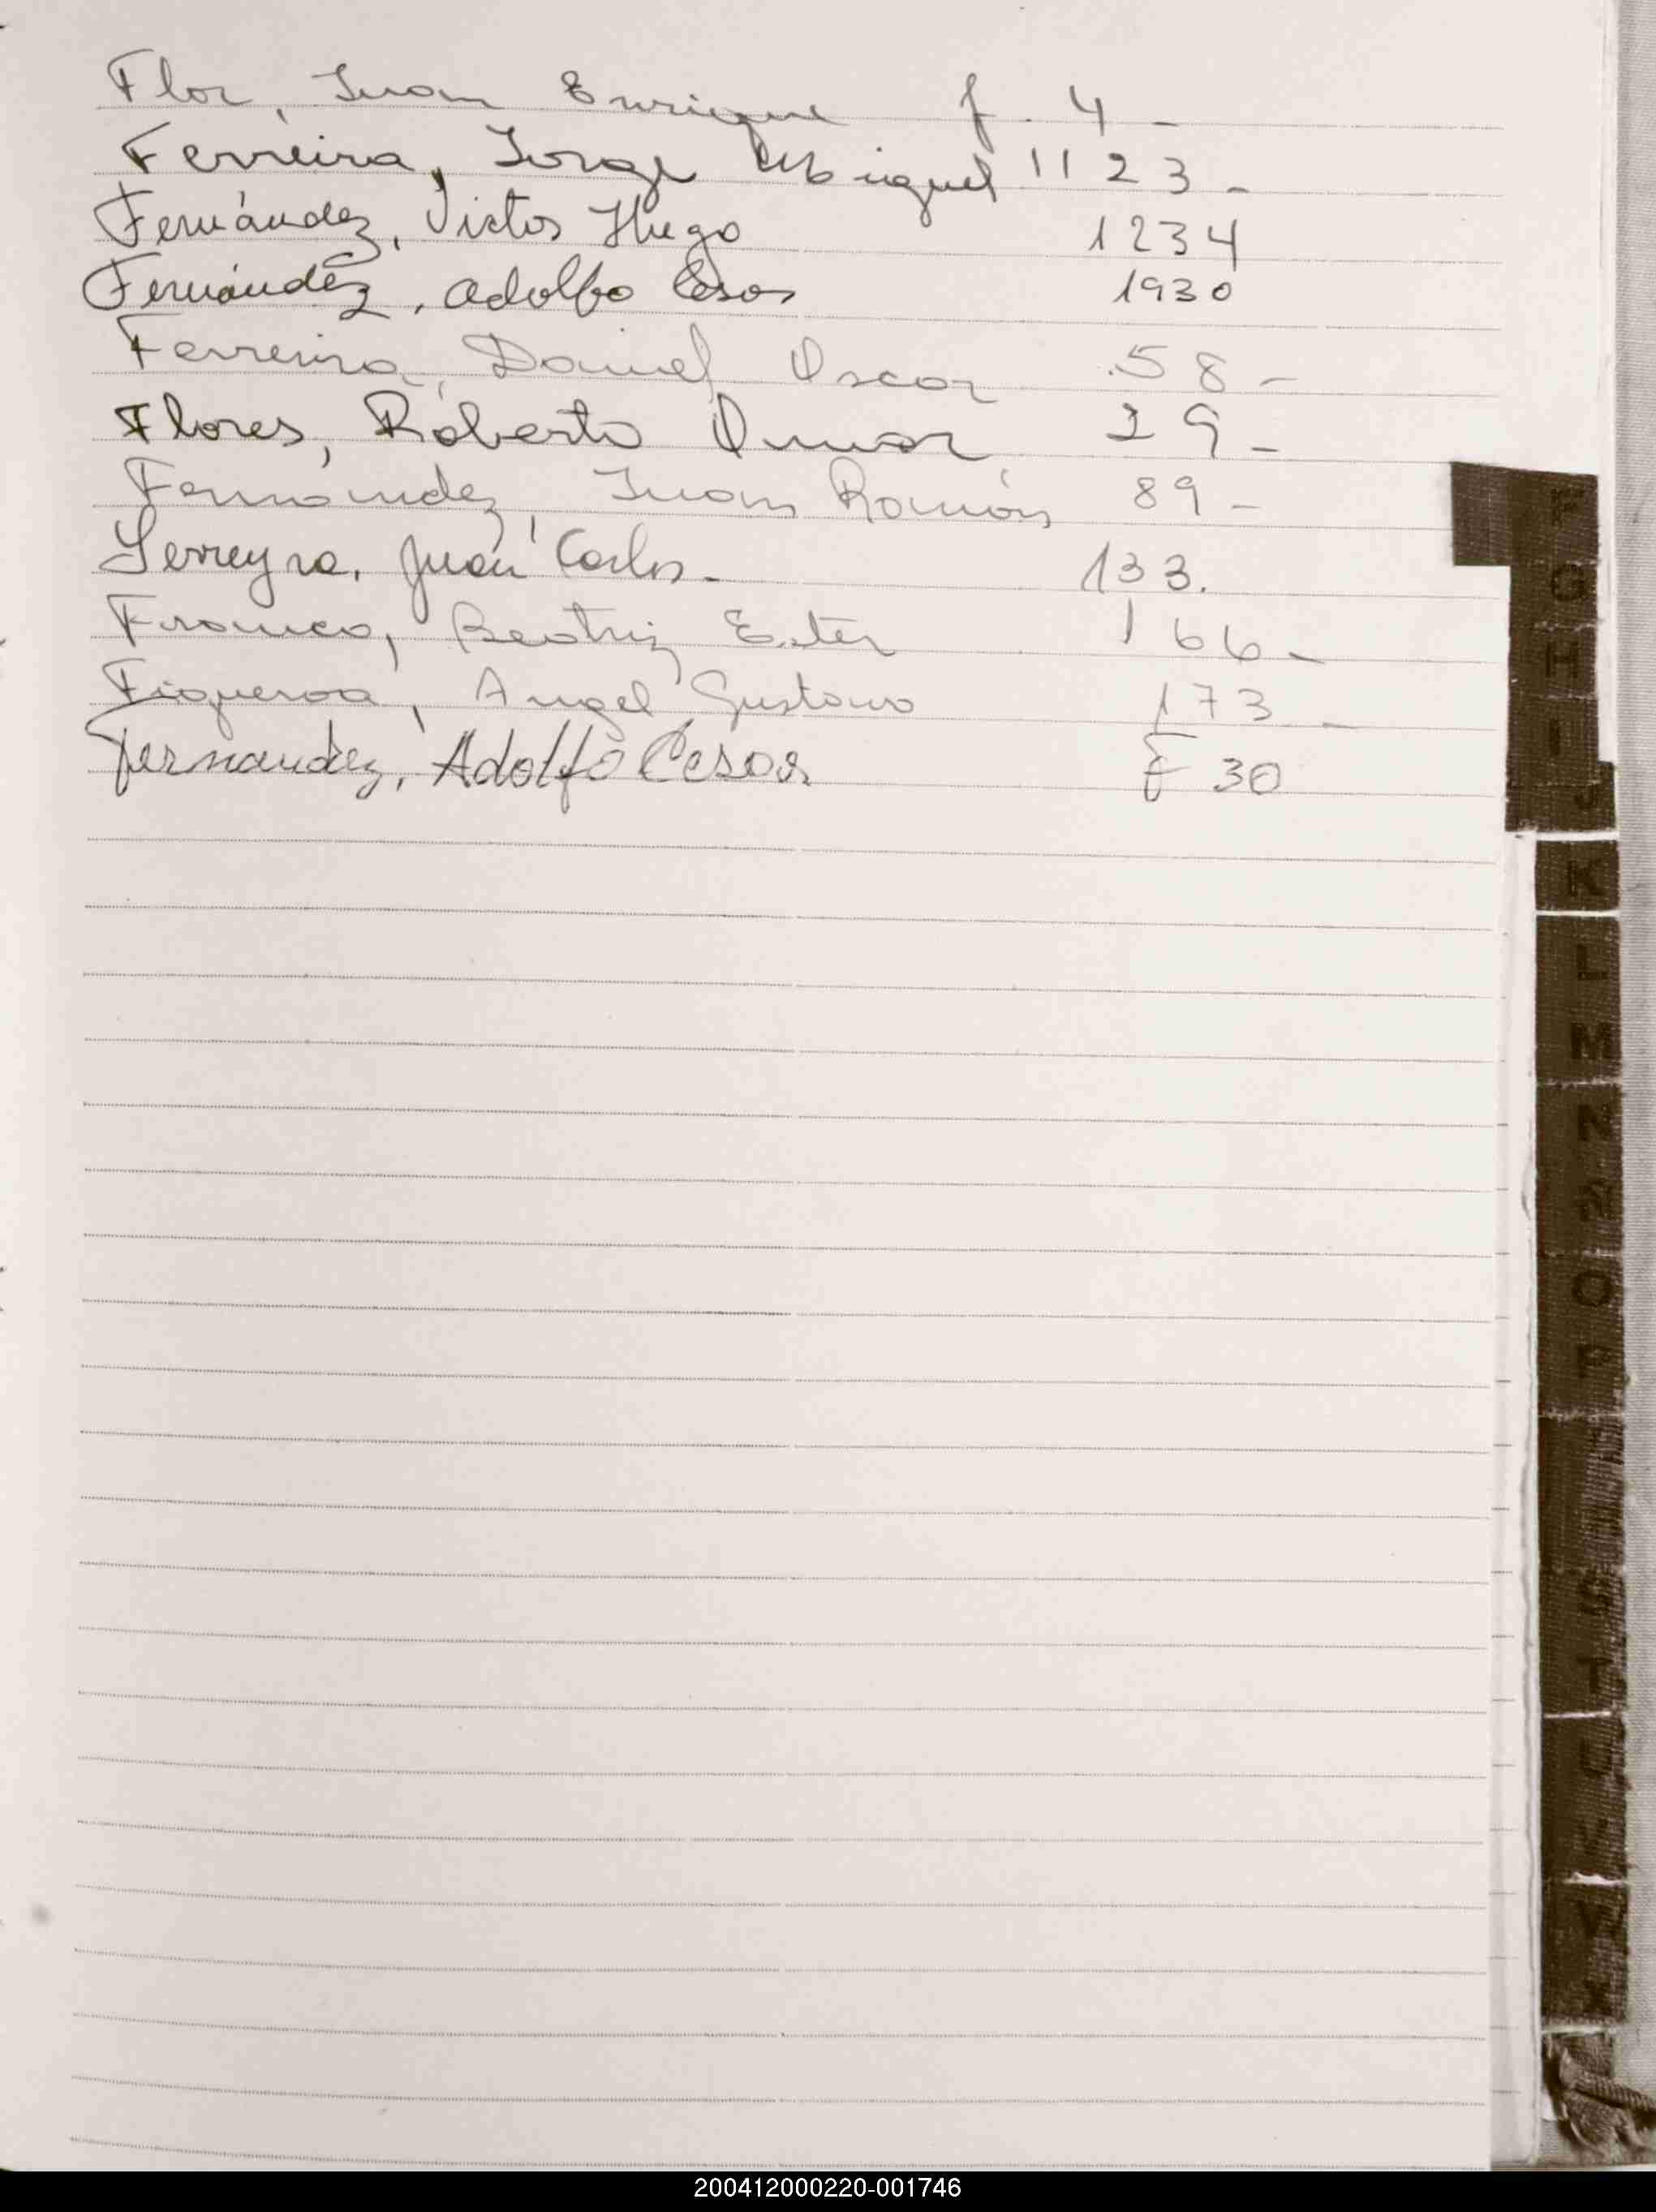 Flor, Juan Enrique f. 4 -
Ferreira, Jorge Miguel 1123 -
Fernández, Victor Hugo 1234
Fernández, Adolfo Cesar 1930
Ferreira, Daniel Oscar 58 -
Flores, Roberto Omar 29 -
Fernández, Juan Ramón 89 -
Ferreyra, Juan Carlos - 133.
Franco, Beatriz Ester 166 -
Figueroa, Angel Gustavo 173 -
Fernandez, Adolfo Cesar F 30
F
G
H
I
J
K
L
M
N
Ñ
O
P
S
T
U
V
200412000220-001746